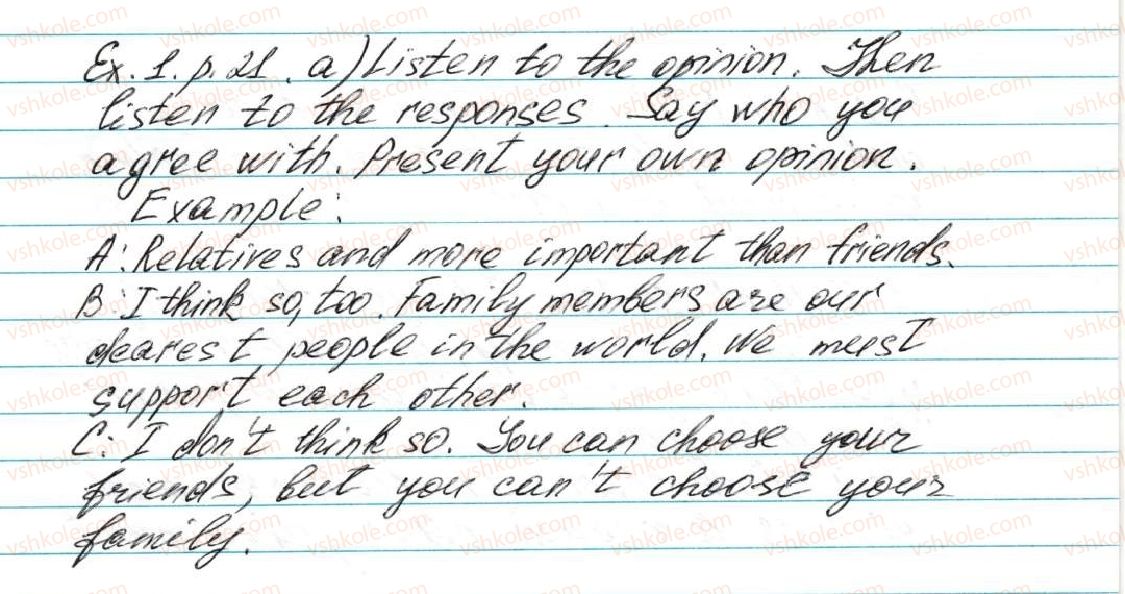 Ex. 1. p. 21. a) Listen to the opinion. Then
listen to the responses. Say who you
agree with. Present your own opinion.
Example:
A: Relatives and more important than friends.
B: I think so, too. Family members are our
dearest people in the world. We must
support each other.
C: I don't think so. You can choose your
friends, but you can't choose your
family.
vshkole.com